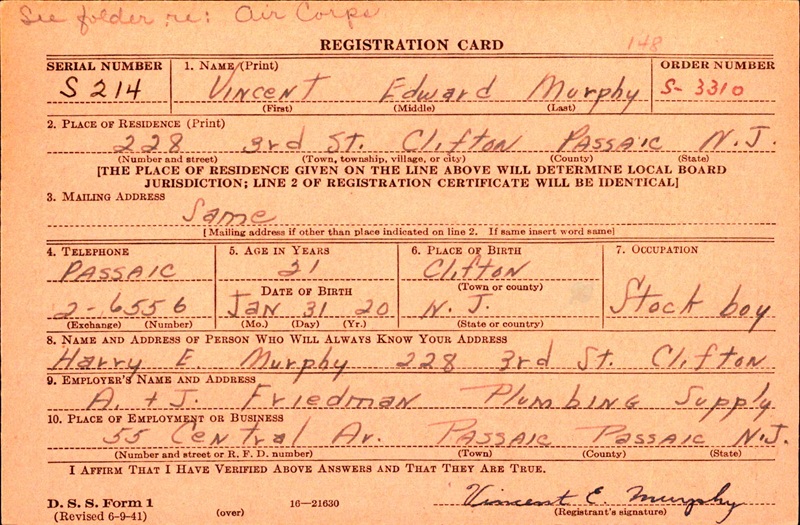 See folder re: Air Corps
REGISTRATION CARD 148
SERIAL NUMBER 1. NAME (Print) ORDER NUMBER
S 214 Vincent Edward Murphy S-3310
(First) (Middle) (Last)
2. PLACE OF RESIDENCE (Print)
228 3rd St. Clifton Passaic N.J.
(Number and street) (Town, township, village, or city) (County) (State)
[THE PLACE OF RESIDENCE GIVEN ON THE LINE ABOVE WILL DETERMINE LOCAL BOARD
JURISDICTION; LINE 2 OF REGISTRATION CERTIFICATE WILL BE IDENTICAL]
3. MAILING ADDRESS
Same
[Mailing address if other than place indicated on line 2. If same insert word same]
4. TELEPHONE 5. AGE IN YEARS 6. PLACE OF BIRTH 7. OCCUPATION
Passaic 21 Clifton
DATE OF BIRTH (Town or county)
2-6556 Jan 31 20 N.J. Stock boy
(Exchange) (Number) (Mo.) (Day) (Yr.) (State or country)
8. NAME AND ADDRESS OF PERSON WHO WILL ALWAYS KNOW YOUR ADDRESS
Harry E. Murphy 228 3rd St. Clifton
9. EMPLOYER'S NAME AND ADDRESS
A. + J. Friedman Plumbing Supply
10. PLACE OF EMPLOYMENT OR BUSINESS
55 Central Av. Passaic Passaic N.J.
(Number and street or R. F. D. number) (Town) (County) (State)
I AFFIRM THAT I HAVE VERIFIED ABOVE ANSWERS AND THAT THEY ARE TRUE.
D. S. S. Form 1 Vincent E. Murphy
(Revised 6-9-41) (over) 16—21630 (Registrant's signature)